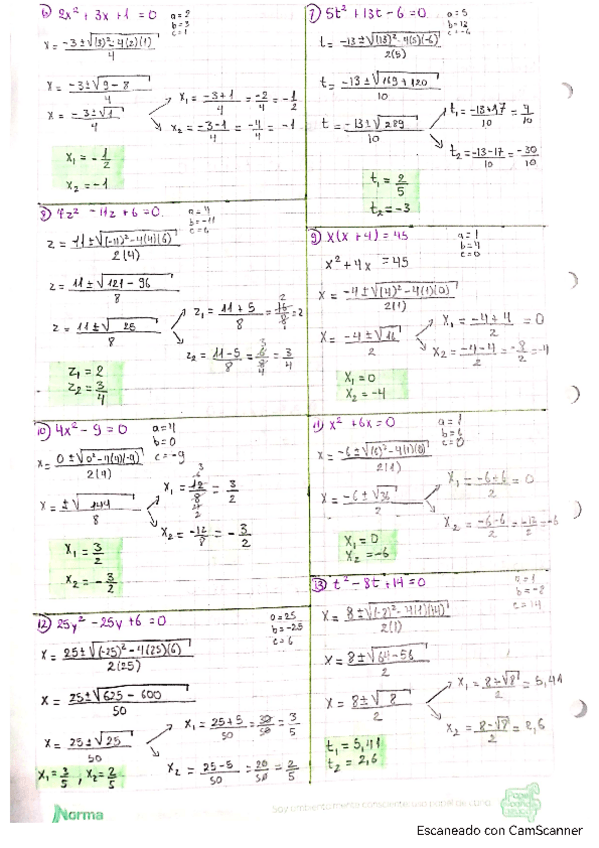 6) 2x² + 3x + 1 = 0
a = 2
b = 3
c = 1
x = -3 ± √(3)² - 4(2)(1) / 4
x = -3 ± √9 - 8 / 4
x = -3 ± √1 / 4
x₁ = -3+1 / 4 = -2/4 = -1/2
x₂ = -3-1 / 4 = -4/4 = -1
x₁ = -1/2
x₂ = -1
7) 5t² + 13t - 6 = 0
a = 5
b = 13
c = -6
t = -13 ± √(13)² - 4(5)(-6) / 2(5)
t = -13 ± √169 + 120 / 10
t = -13 ± √289 / 10
t₁ = -13+17 / 10 = 4/10
t₂ = -13-17 / 10 = -30/10
t₁ = 2/5
t₂ = -3
8) 4z² - 11z + 6 = 0
a = 4
b = -11
c = 6
z = 11 ± √(-11)² - 4(4)(6) / 2(4)
z = 11 ± √121 - 96 / 8
z = 11 ± √25 / 8
z₁ = 11 + 5 / 8 = 16/8 = 2
z₂ = 11-5 / 8 = 6/8 = 3/4
z₁ = 2
z₂ = 3/4
9) x(x + 4) = 45
a = 1
b = 4
c = 0
x² + 4x = 45
x = -4 ± √(4)² - 4(1)(0) / 2(1)
x = -4 ± √16 / 2
x₁ = -4+4 / 2 = 0
x₂ = -4-4 / 2 = -8/2 = -4
x₁ = 0
x₂ = -4
10) 4x² - 9 = 0
a = 4
b = 0
c = -9
x = 0 ± √0² - 4(4)(-9) / 2(4)
x = ± √144 / 8
x₁ = 12/8 = 3/2
x₂ = -12/8 = -3/2
x₁ = 3/2
x₂ = -3/2
11) x² + 6x = 0
a = 1
b = 6
c = 0
x = -6 ± √(6)² - 4(1)(0) / 2(1)
x = -6 ± √36 / 2
x₁ = -6+6 / 2 = 0
x₂ = -6-6 / 2 = -12/2 = -6
x₁ = 0
x₂ = -6
12) 25y² - 25y + 6 = 0
a = 25
b = -25
c = 6
x = 25 ± √(-25)² - 4(25)(6) / 2(25)
x = 25 ± √625 - 600 / 50
x = 25 ± √25 / 50
x₁ = 25+5 / 50 = 30/50 = 3/5
x₂ = 25-5 / 50 = 20/50 = 2/5
x₁ = 3/5, x₂ = 2/5
13) t² - 8t + 14 = 0
a = 1
b = -8
c = 14
x = 8 ± √(-8)² - 4(1)(14) / 2(1)
x = 8 ± √64 - 56 / 2
x = 8 ± √8 / 2
x₁ = 8+√8 / 2 = 5,41
x₂ = 8-√8 / 2 = 2,6
t₁ = 5,41
t₂ = 2,6
Norma
Soy ambientalmente consciente, uso papel de caña
Escaneado con CamScanner